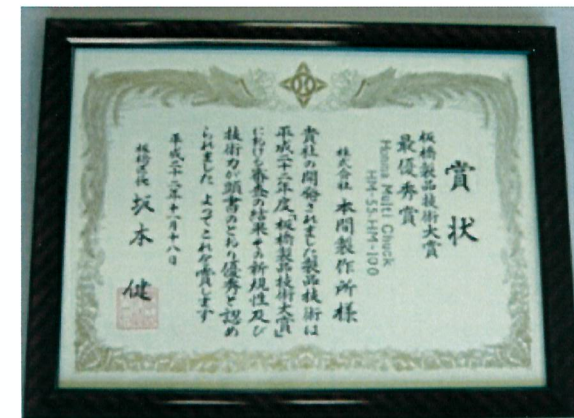 賞状
板橋製品技術大賞
最優秀賞
Honma Multi Chuck
HM-55・HM-100
株式会社 本間製作所様
貴社の開発されました製品技術は
平成二十二年度「板橋製品技術大賞」
における審査の結果その新規性及び
技術力が顕著のとおり優秀と認め
られました よってこれを賞します
平成二十二年十一月十八日
板橋区長 坂本 健